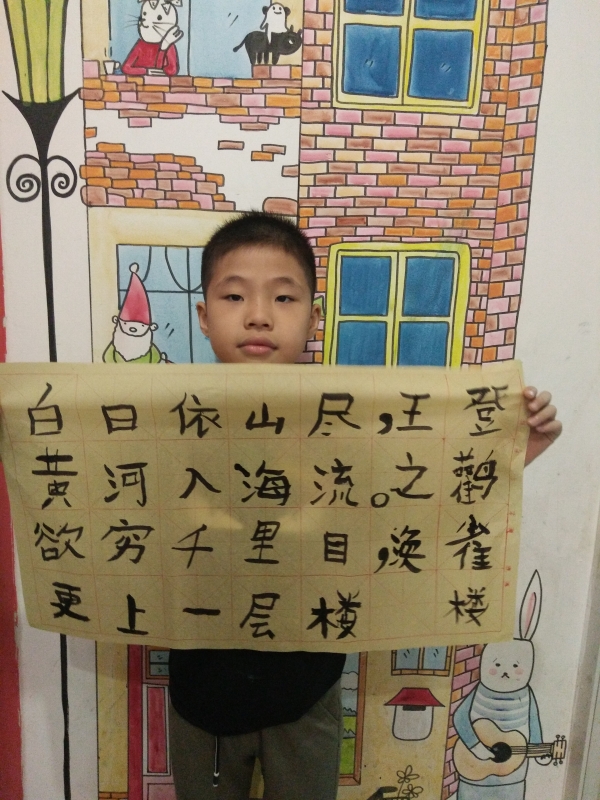 登鹳雀楼
王之涣
白日依山尽，
黄河入海流。
欲穷千里目，
更上一层楼